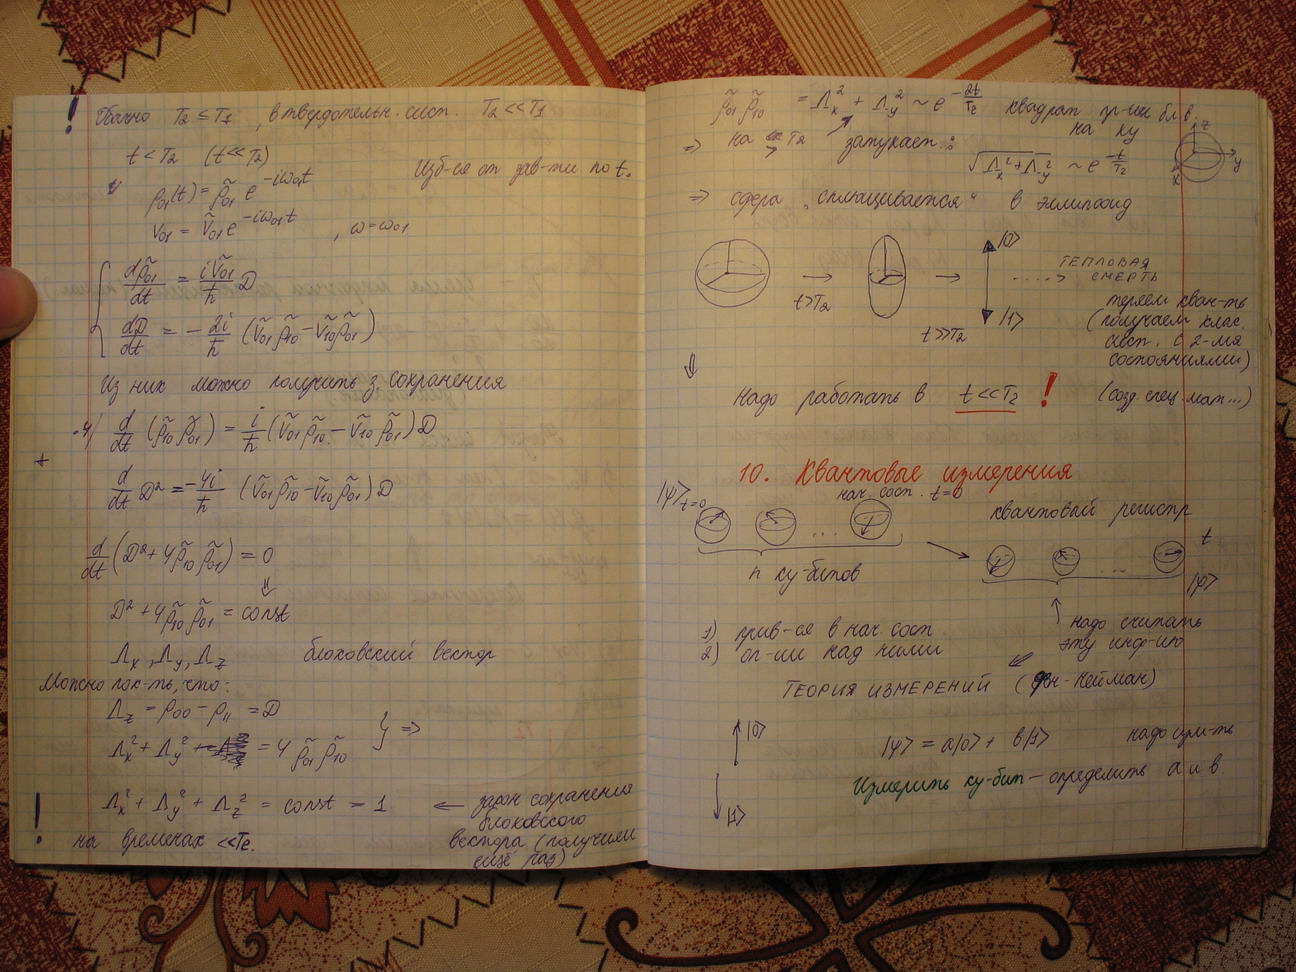 ! Обычно T₂ ≤ T₁, в твердотельн. сист. T₂ << T₁
t < T₂ (t << T₂)
Изб-ся от зав-ти по t.
ρ₀₁(t) = ρ̃₀₁ e^{-iω₀₁t}
V₀₁ = Ṽ₀₁ e^{-iω₀₁t}, ω = ω₀₁
dρ̃₀₁/dt = iṼ₀₁/ħ D
dD/dt = - 2i/ħ (Ṽ₀₁ρ̃₁₀ - Ṽ₁₀ρ̃₀₁)
Из них можно получить з. сохранения
·4/ d/dt (ρ̃₁₀ρ̃₀₁) = i/ħ (Ṽ₀₁ρ̃₁₀ - Ṽ₁₀ρ̃₀₁) D
+
d/dt D² = -4i/ħ (Ṽ₀₁ρ̃₁₀ - Ṽ₁₀ρ̃₀₁) D
d/dt (D² + 4ρ̃₁₀ρ̃₀₁) = 0
⇓
D² + 4ρ̃₁₀ρ̃₀₁ = const
Λx, Λy, Λz блоховский вектор
Можно пок-ть, что:
Λz = ρ₀₀ - ρ₁₁ = D
Λx² + Λy² = 4 ρ̃₀₁ρ̃₁₀ } ⇒
! Λx² + Λy² + Λz² = const = 1 ← закон сохранения
блоховского
на временах << T₂. вектора (получили
ещё раз)
ρ̃₀₁ρ̃₁₀ = Λx² + Λy² ~ e^{-2t/T₂} квадрат пр-ии бл. в.
на xy
⇒ на T₂ затухает:
z
y
x
√(Λx² + Λy²) ~ e^{-t/T₂}
⇒ сфера „сплющивается“ в эллипсоид
→ t>T₂ → t>>T₂ |0⟩ |1⟩ ....→ ТЕПЛОВАЯ
СМЕРТЬ
теряем кван-ть
(получаем клас.
сист. с 2-мя
состояниями)
⇓
надо работать в t << T₂ ! (созд. спец. мат...)
10. Квантовые измерения
|ψ⟩t=0 нач. сост. t=0
...
квантовый регистр
n ку-битов
... t
|ψ⟩
1) прив-ся в нач. сост
2) оп-ии над ними
надо считать
эту инф-ию
ТЕОРИЯ ИЗМЕРЕНИЙ (фон-Нейман)
|0⟩
|ψ⟩ = a|0⟩ + b|1⟩
Измерить ку-бит - определить a и b.
|1⟩